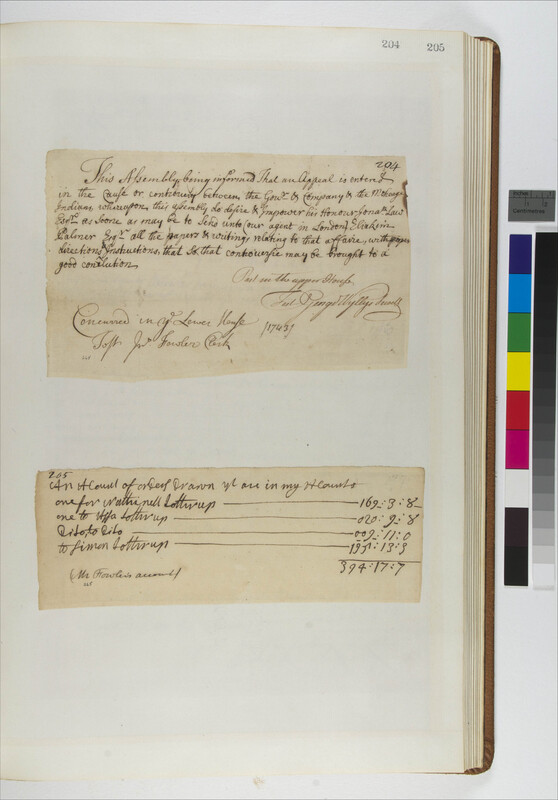 204 205
204
This Assembly being informed That an Appeal is enterd
in the Cause or controversy between the Govr. & Company & the Mohegan
Indians, whereupon, this assembly do desire & Impower his Honour Jonath. Law
Esqr. as soone as may be to send unto our agent in London Eliakim
Palmer Esqr. all the papers & writings relating to that affaire, with proper
directions & Instructions, that so that controversie may be brought to a
good conclusion
Past in the upper House
Test George Wyllys Secrett
Concurred in ye Lower House [1743]
Test Jno. Fowler Clerk
205
An Acount of orders Drawn yt are in my Acounts
one for Nathaniell Lothrup 169:3:8
one to Lothrup 020:9:8
Dito to Dito 009:11:0
to Simon Lothrup 195:13:3
394:17:7
(Mr Fowlers account)